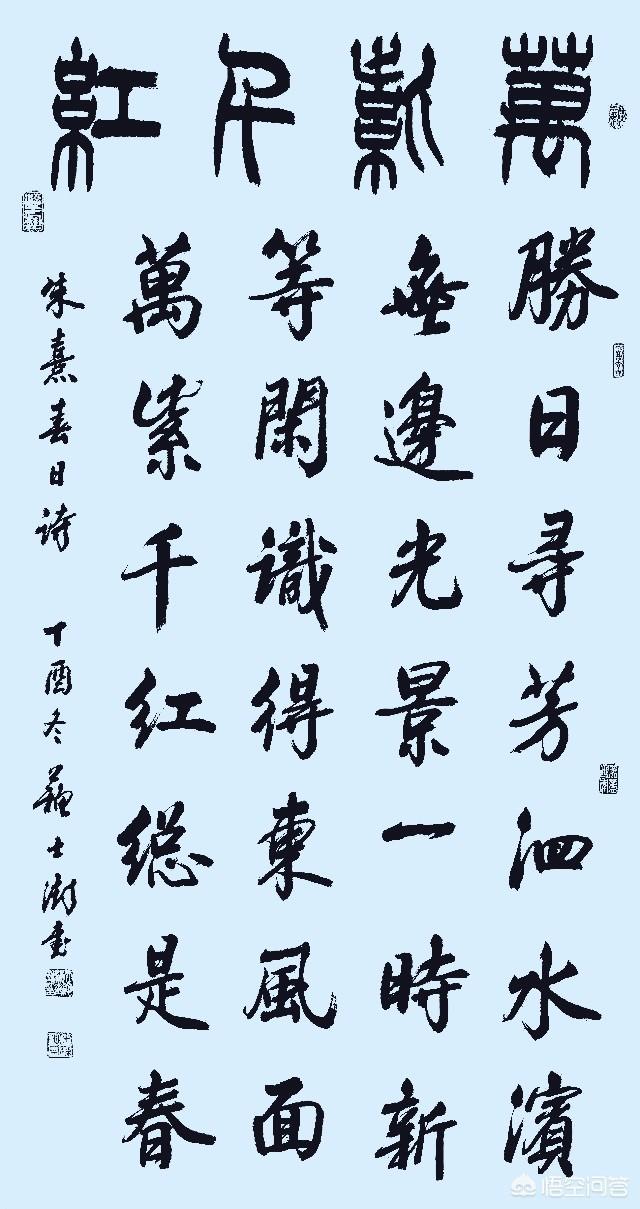 萬紫千紅
勝日尋芳泗水濱
無邊光景一時新
等閑識得東風面
萬紫千紅總是春
朱熹春日诗 丁酉冬 蘇士澍書
悟空问答